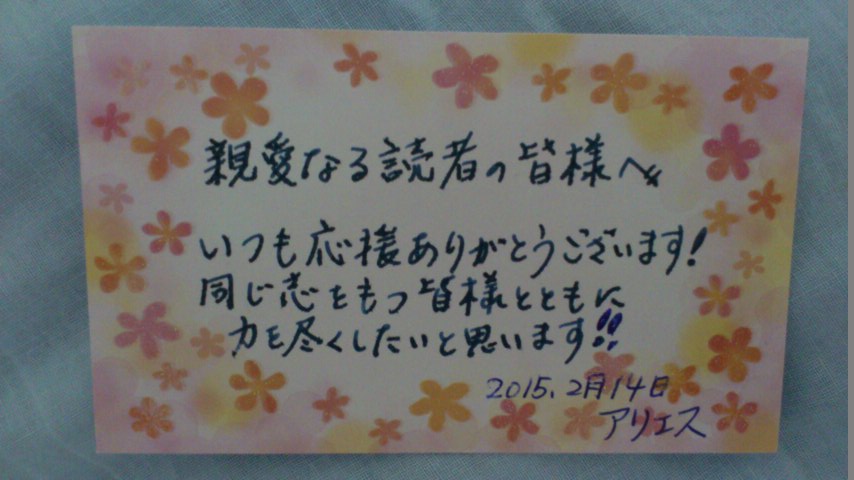 親愛なる読者の皆様へ
いつも応援ありがとうございます!
同じ志をもつ皆様とともに
力を尽くしたいと思います!!
2015.2月14日
アリエス